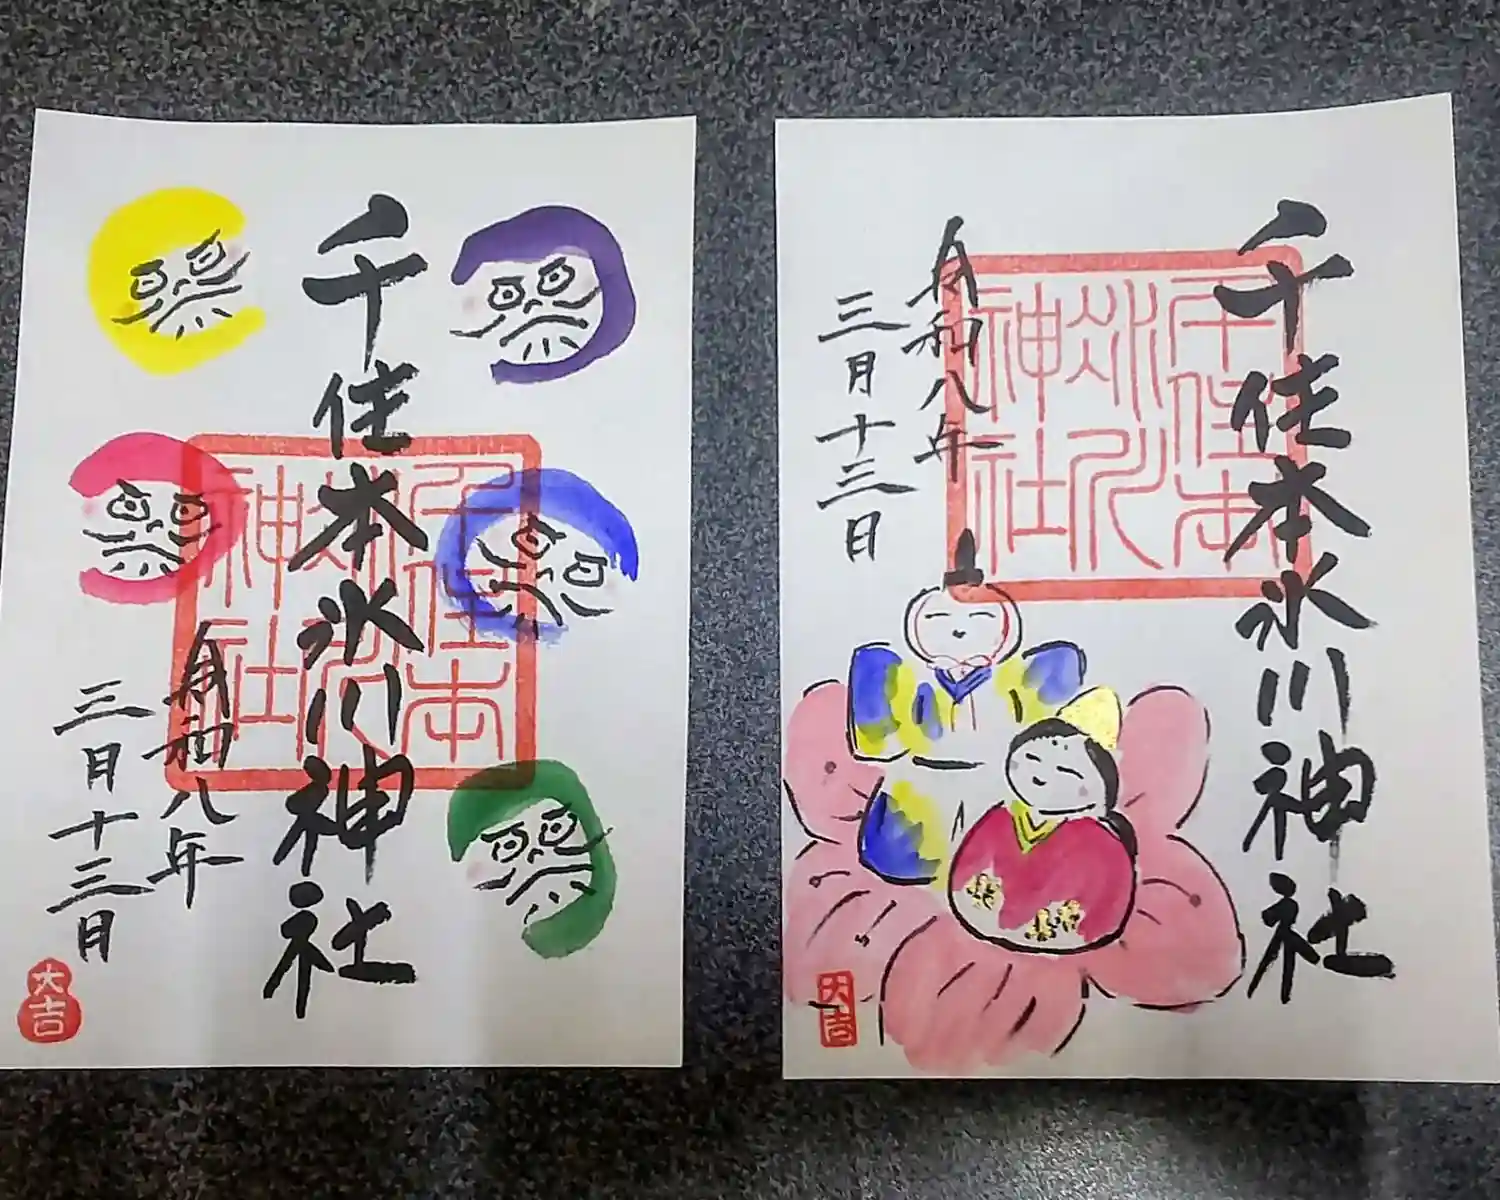 千住本氷川神社
令和八年
三月十三日
千住本氷川神社
大吉
千住本氷川神社
令和八年
三月十三日
千住本氷川神社
大吉